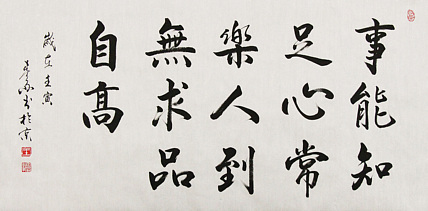 事能知
足心常
樂人到
無求品
自高
歲在壬寅
书於京